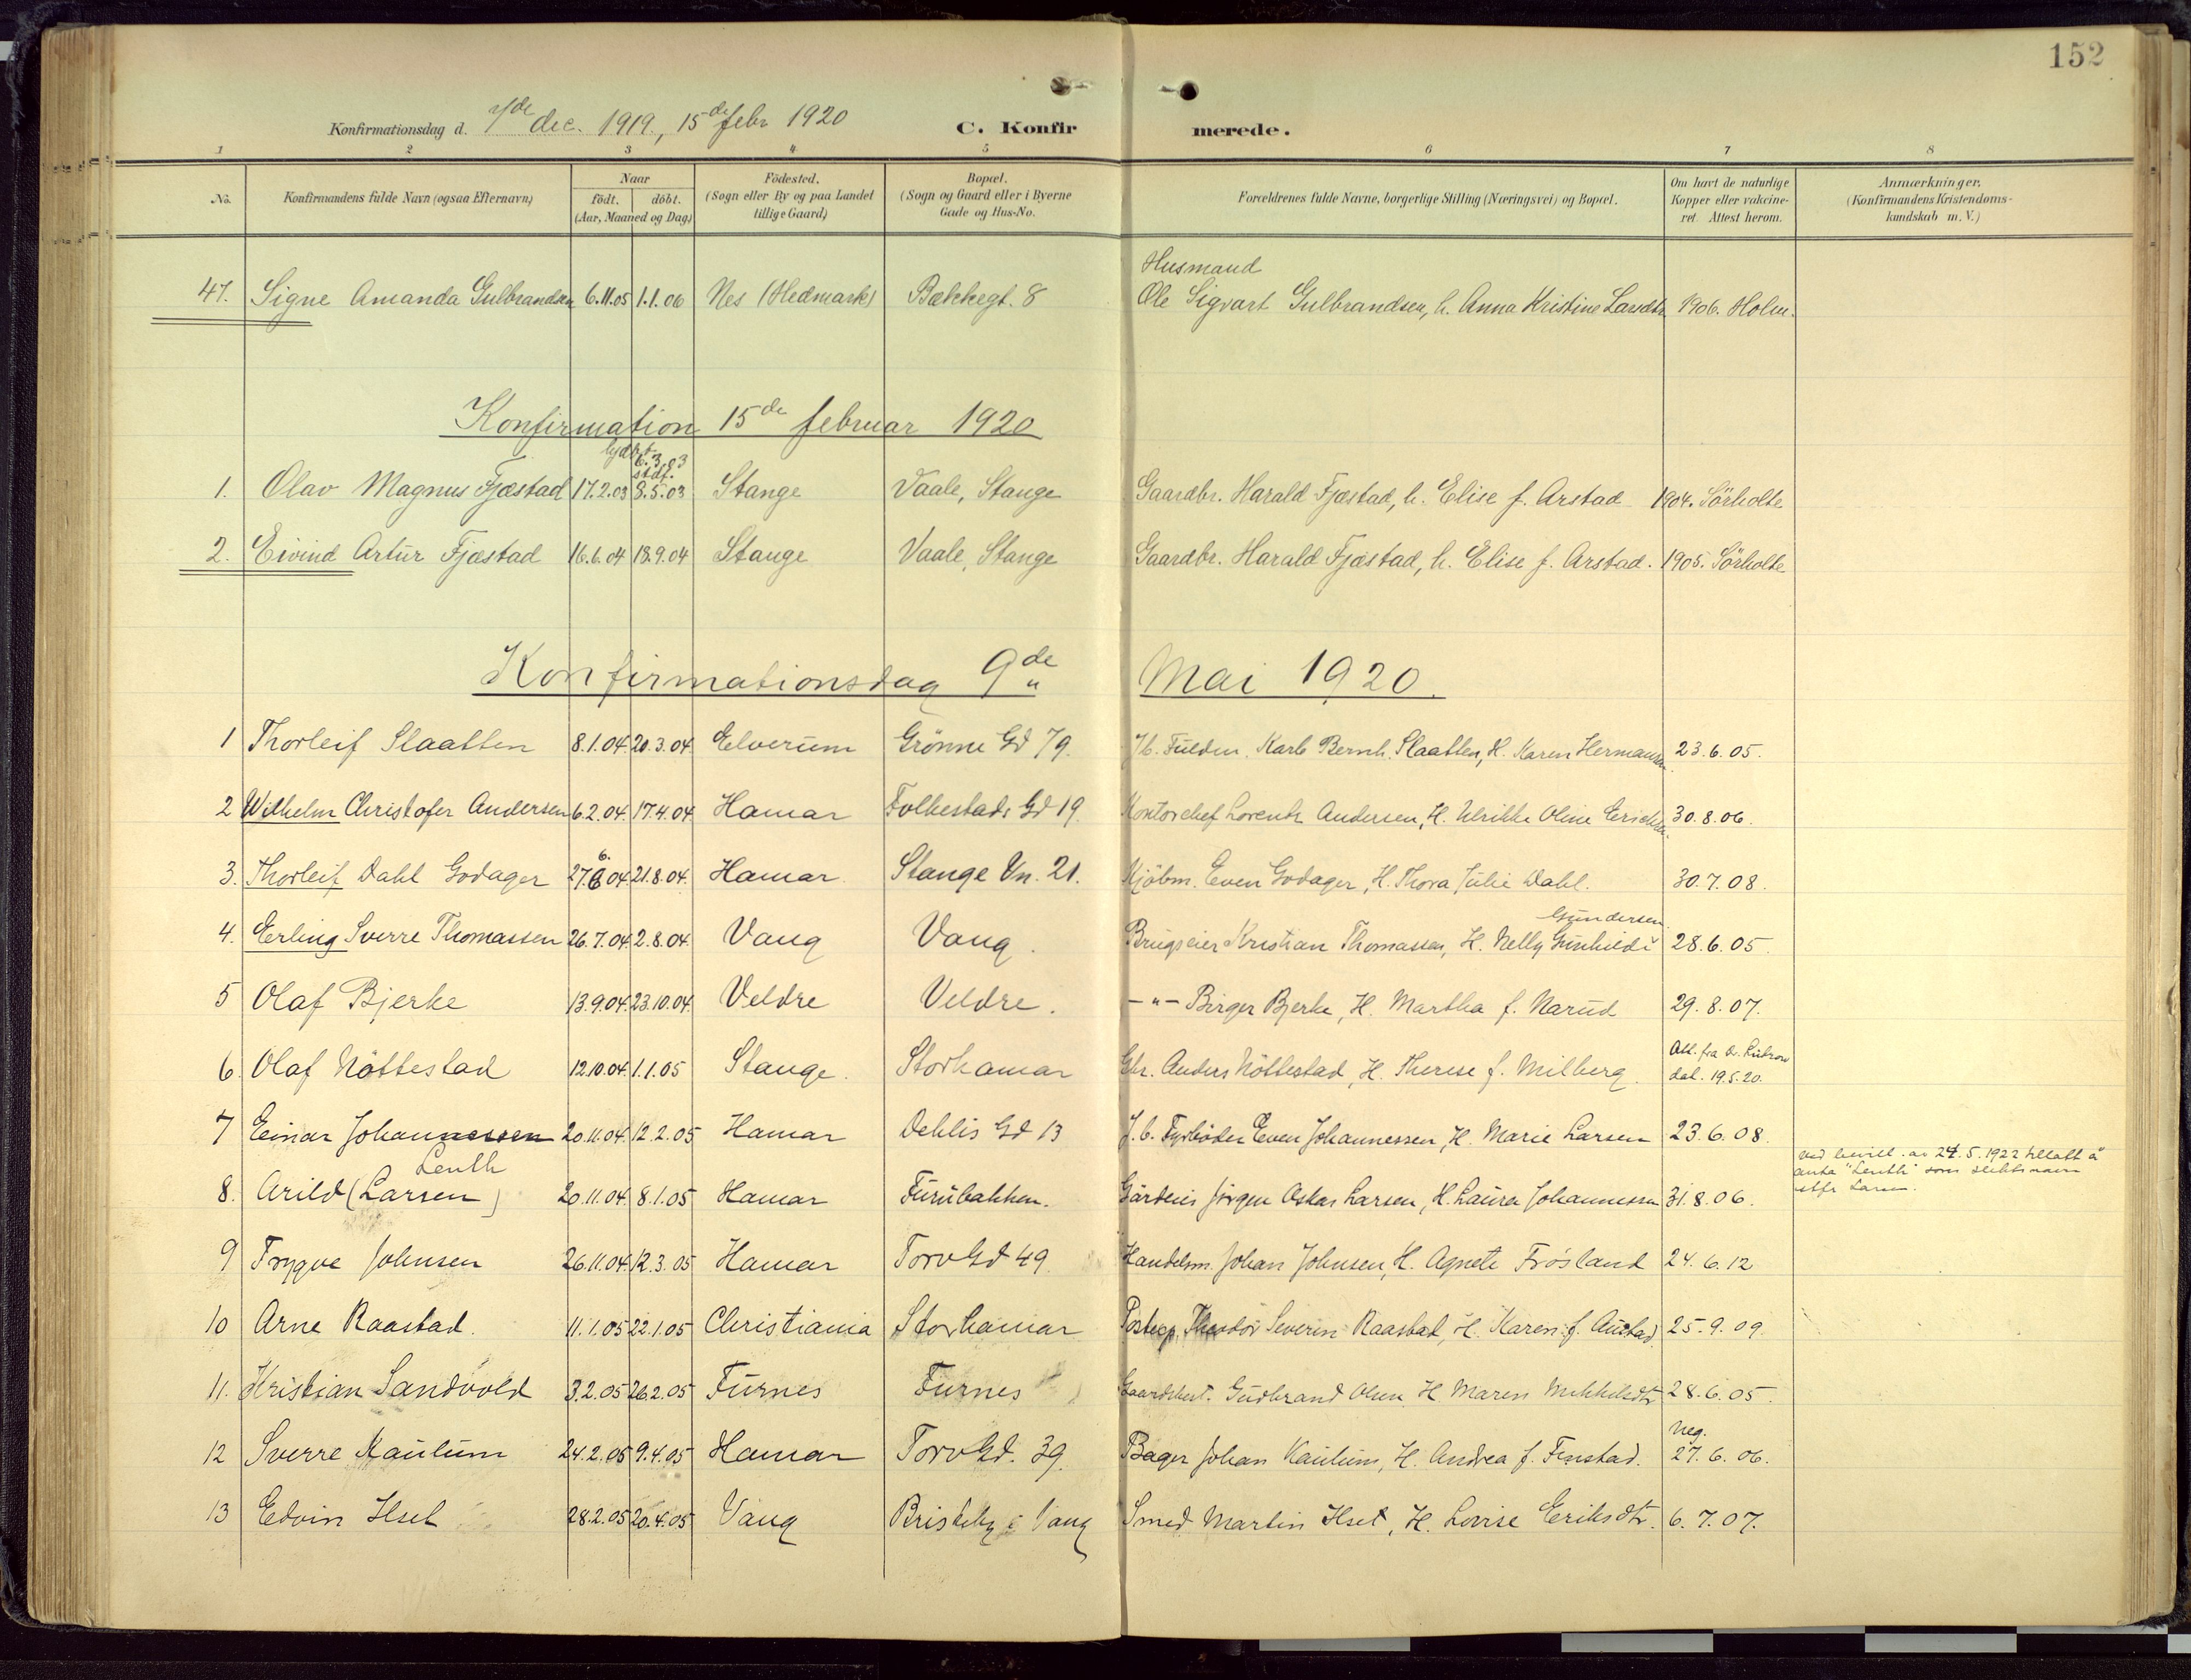 152
Konfirmationsdag d. 7de dec. 1919, 15de febr 1920 C. Konfirmerede.
1 2 3 4 5 6 7 8
No. Konfirmandens fulde Navn (ogsaa Efternavn) Naar födt. döbt. (Aar, Maaned og Dag) Födested. (Sogn eller By og paa Landet tillige Gaard) Bopæl. (Sogn og Gaard eller i Byerne Gade og Hus-No. Forældrenes fulde Navne, borgerlige Stilling (Næringsvei) og Bopæl. Om havt de naturlige Kopper eller vakcineret. Attest herom. Anmærkninger. (Konfirmandens Kristendomskundskab m. V.)
Husmand
47. Signe Amanda Gulbrandsen 6.11.05 1.1.06 Nes (Hedmark) Bækkegt. 8 Ole Sigvart Gulbrandsen, h. Anna Kristine Larsdtr 1906. Holm.
Konfirmation 15de februar 1920
hjdbt. 6.3.03
stdf.
1. Olav Magnus Fjæstad 17.2.03 8.5.03 Stange Vaale, Stange Gaardbr. Harald Fjæstad, h. Elise f. Arstad 1904. Sörholte
2. Eivind Artur Fjæstad 16.6.04 18.9.04 Stange Vaale, Stange Gaardbr. Harald Fjæstad, h. Elise f. Arstad. 1905. Sörholte
Konfirmationsdag 9de Mai 1920.
1 Thorleif Slaatten 8.1.04. 20.3.04. Elverum Grönne Gd 79. Karl Bernh. Slaatten, H. Karen Hermansen 23.6.05.
2 Wilhelm Christofer Andersen 6.2.04. 17.4.04 Hamar Folkestads Gd 19. Kontorchef Lorentz Andersen, H. Ulrikke Oline Ericksen. 30.8.06.
6.
3. Thorleif Dahl Godager 27.6.04 21.8.04. Hamar Stange Vn. 21. Kjöbm. Even Godager, H. Thora Julie Dahl. 30.7.08.
Gundersen
4. Erling Sverre Thomassen 26.7.04. 2.8.04. Vang Vang. Brugseier Kristian Thomassen, H. Nelly Gunhildi 28.6.05.
5 Olaf Bjerke 13.9.04. 23.10.04. Veldre Veldre. -"- Birger Bjerke, H. Martha f. Narud 29.8.07.
6. Olaf Nöttestad 12.10.04. 1.1.05 Stange. Storhamar Gbr. Anders Nöttestad, H. Therese f. Milberg. Att. fra Dr. Lützow dat. 19.5.20.
7 Einar Johannessen 20.11.04. 12.2.05 Hamar Dehlis Gd 13 J.b. Fyrböder Even Johannessen, H. Marie Larsen 23.6.08.
Lenth
8. Arild (Larsen) 20.11.04. 8.1.05 Hamar Furubakken. Gårdeier Jörgen Oskar Larsen, H. Laura Johannessen 31.8.06.
ved bevill. av 24.5.1922 tillatt å
anta "Lenth" som slektsnavn
istfr Larsen.
9 Trygve Johnsen 26.11.04. 12.3.05 Hamar Torv Gd 49 Handelsm. Johan Johnsen, H. Agnete Frösland 24.6.12
10 Arne Raastad. 11.1.05 22.1.05 Christiania Storhamar Postexp. Theodor Severin Raastad, H. Karen f. Austad. 25.9.09.
11. Kristian Sandvold 3.2.05 26.2.05 Furnes Furnes Gaardsbest. Gudbrand Olsen H. Maren Mikkelsdtr 28.6.05.
12 Sverre Kaulum 24.2.05 9.4.05 Hamar Torv Gd. 39. Bager Johan Kaulum, H. Andrea f. Finstad. Neg. 27.6.06.
13 Edvin Ilset 28.2.05 20.4.05 Vang Bristeby i Vang Smed Martin Ilset, H. Lovise Eriksdtr. 6.7.07.